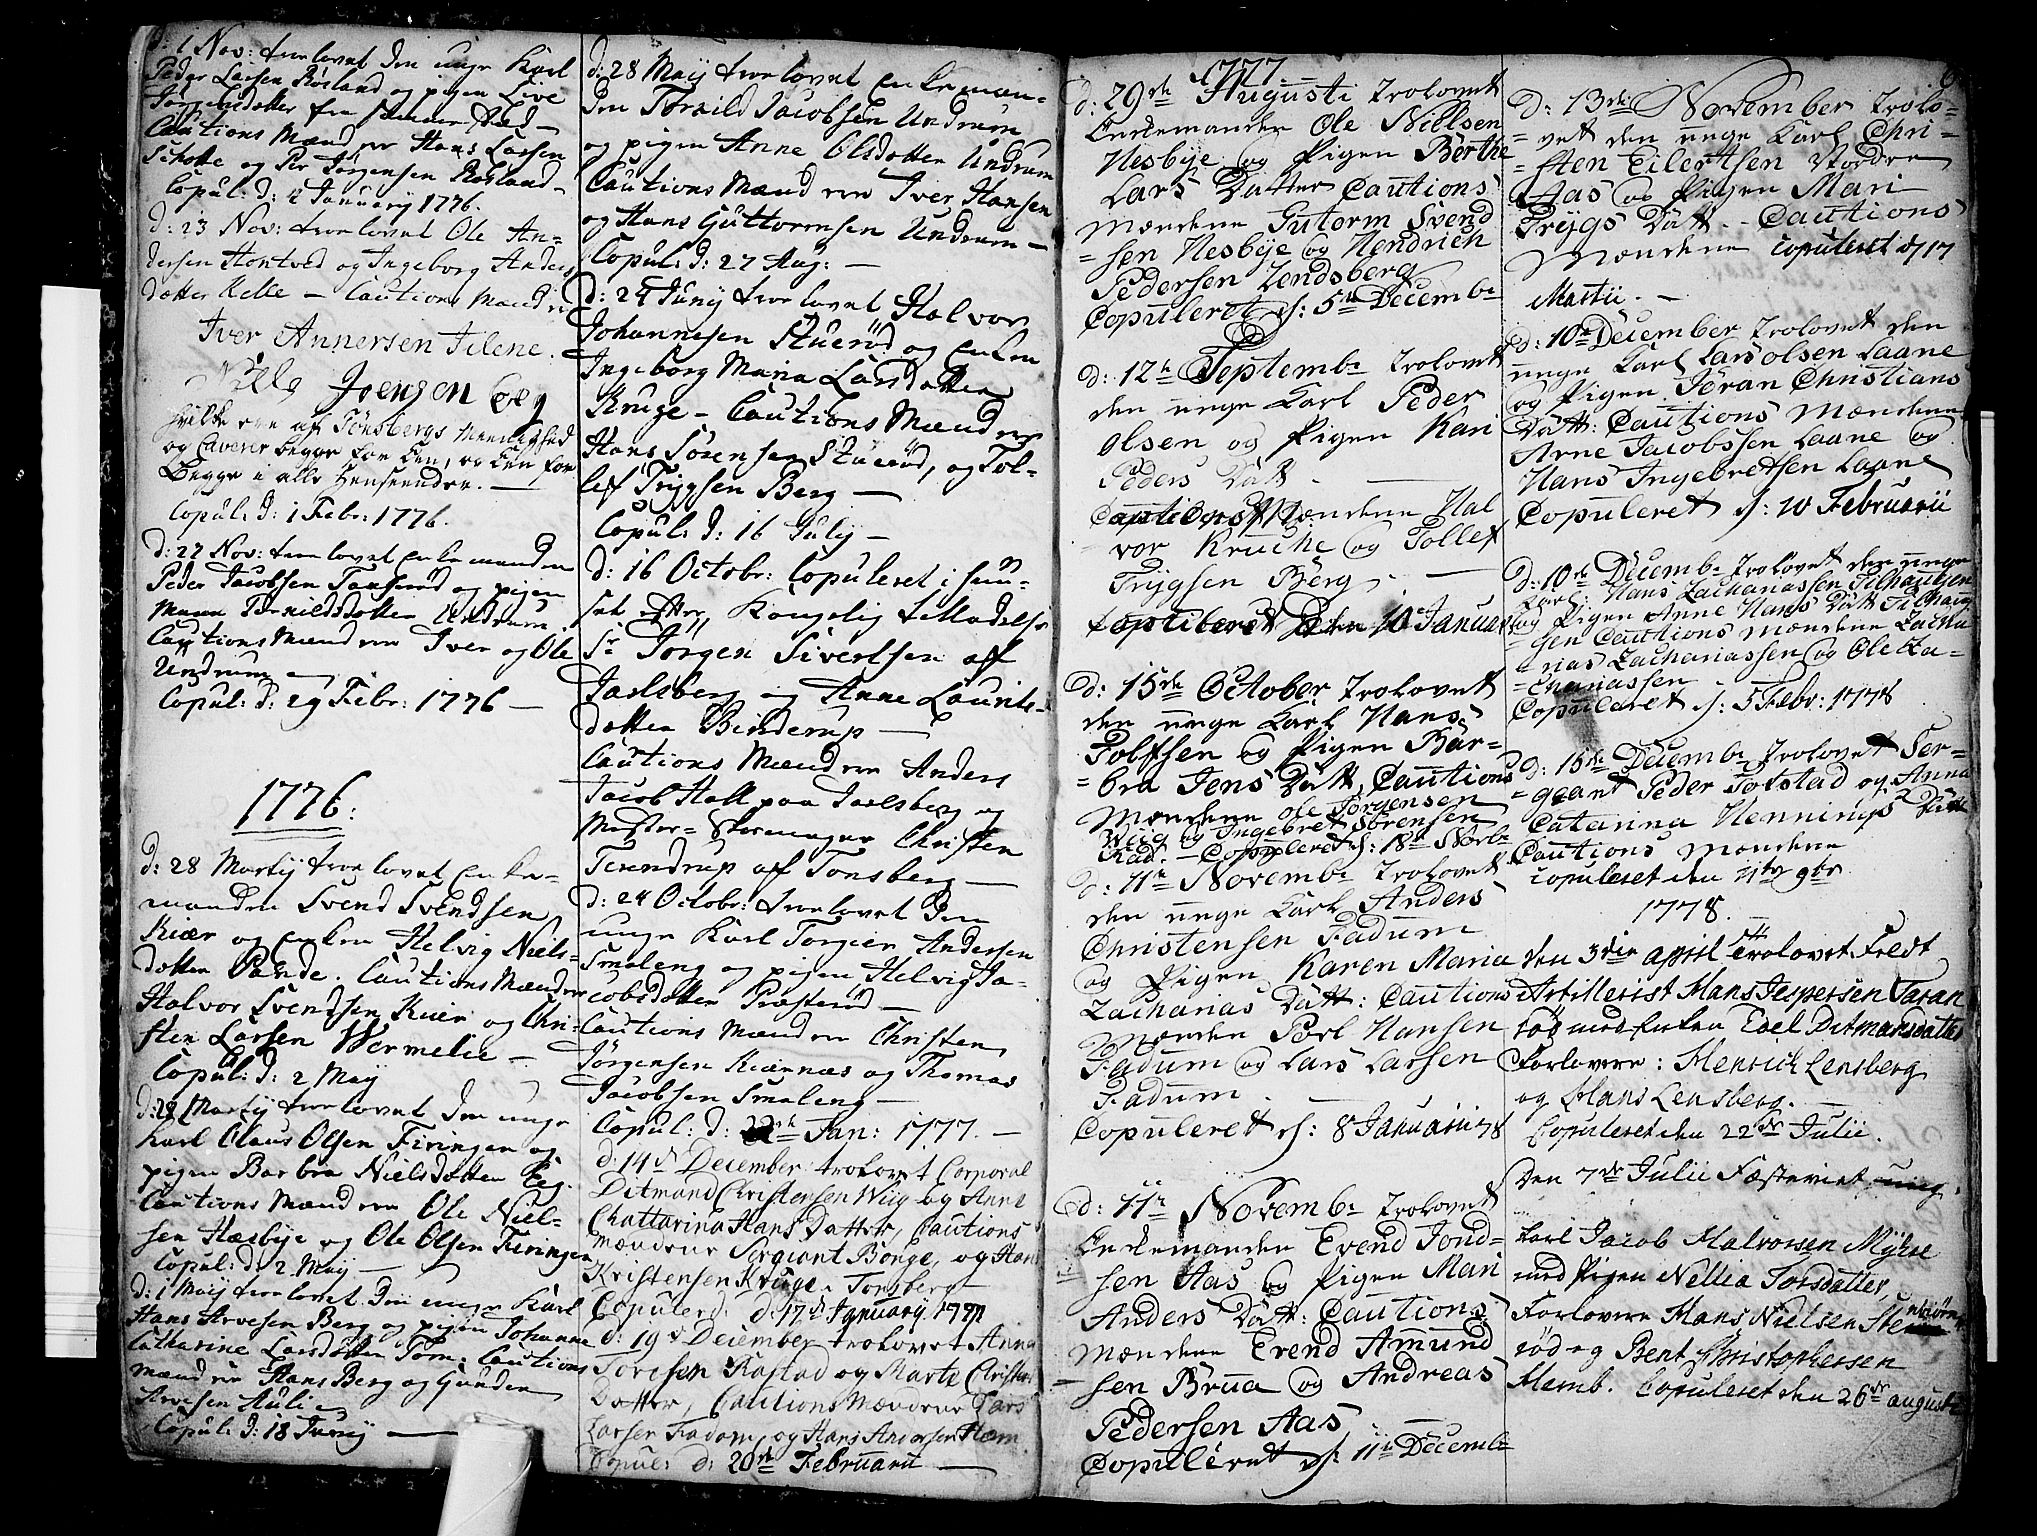 d: 1 Nov: trolovet den unge Karl
Peder Larsen Røsland og pigen Live
Jørgensdotter fra samme stæd —
Cautions Mænd er Hans Larsen
Schotte og Per Jørgensen Røsland —
Copul: d: 2 January 1776.
d: 23 Nov: trolovet Ole An=
dersen Hontved og Ingeborg Anders
dotter Kelle — Cautions Mænd er
Iver Annersen Ielene.
Niels Joensen Berg
hvilke ere af Tønsbergs Meenighed
og Caverer begge for Een, og Een for
Begge i alle Henseender. —
Copul: d: 1 Febr: 1776.
d: 27 Nov: trolovet enkemanden
Peder Jacobsen Tanserød og pigen
Maria Torkildsdotter Undrum
Cautions Mænd er Iver og Ole
Undrum —
Copul: d: 29 Febr: 1776 —
1776:
d: 28 Martij trolovet Enke=
manden Svend Svendsen
Kiær og enken Helvig Niels=
dotter Rande. Cautions Mænd er
Halvor Svendsen Kiær og Chri=
sten Larsen Wermelie —
Copul: d: 2 Maij
d: 29 Martij trolovet den unge
Karl Claus Olsen Firingen og
pigen Barbra Nielsdotter Eeg.
Cautions Mænd er Ole Niel=
sen Hæsbye og Ole Olsen Firingen
Copul: d: 2 Maij —
d: 1 Maij trolovet den unge Karl
Hans Arvesen Berg og pigen Johanne
Catharine Larsdotter Tom. Cautions
mænd er Hans Berg og Gunder
Arvesen Auli —
Copul: d: 18 Junij —
d: 28 Maij trolovet enkeman=
den Torkild Jacobsen Undrum
og pigen Anne Olsdotter Undrum
Cautions Mænd ere Iver Hansen
og Hans Guttormsen Undrum —
Copul: d: 27 Aug: —
d: 24 Junij trolovet Halvor
Johannesen Stuerød og enken
Ingeborg Maria Larsdotter
Kruge — Cautions Mænd er
Hans Sørensen Stuerød, og Tol=
lef Trygsen Berg —
Copul: d: 16 Julij —
d: 16 Octobr: Copuleret i huu=
set efter Kongelig tilladelse
Sr Jørgen Sivertsen af
Jarlsberg og Anne Laurits=
dotter Binderup —
Cautions Mænd ere Anders
Jacob Hall paa Jarlsberg og
Mester= Skomager Christen
Terendrup af Tonsberg —
d: 24 Octobr: trolovet Den
unge Karl Torgier Andersen
Smaleng og pigen Helvig Ja=
cobsdotter Præsterød —
Cautions Mænd ere Christen
Jørgensen Kiærnæs og Thomas
Jacobsen Smaleng —
Copul: d: 22de Jan: 1777. —
d: 14de December trolovet Corporal
Ditmand Christensen Wiig og Anne
Chattarina Hans Datter, Cautions
mændene Sergiant Bonge, og Hans
Kristensen Kruge, Tonsberg
Copulerd: d: 17de January 1777
d: 19de December trolovet Anna
Toresen Røstad og Marte Christens
Datter, Cautions Mændene Lars
Larsen Fadom, og Hans Andersen Hem.
Copul: d: 20de Februarii —
1777.
d: 29de Augusti Trolovet
Enkemanden Ole Nielsen
Nesbye og Pigen Berthe
Lars Datter Cautions
Mændene Gutorm Svend
=sen Nesbye og Hendrich
Pedersen Lendsberg
Copuleret d: 5te Decembr
d: 12te Septembr Trolovet
den unge Karl Peder
olsen og Pigen Kari
Peders Datt. —
Cautions Mændene Hal
vor Kruche og Tollef
Trygsen Berg. —
Copuleret den 10 Januar
d: 15de October Trolovet
den unge Karl Hans
Rolfsen og Pigen Bar=
=bra Jens Datt. Cautions
Mændene Ole Jørgensen
Wiig og Ingebret Sørensen
Rød. — Copuleret d: 18de Novbr
d: 11te Novembr Trolovet
den unge Karl Anders
Christensen Fadum
og Pigen Karen Maria
Zacharias Datt: Cautions
Mænden Poel Hansen
Fadum og Lars Larsen
Fadum. —
Copuleret d: 8 Januarii 78
d: 11te Novembr Trolovet
Enkemanden Evend Jond=
sen Aas og Pigen Mari
Anders Datt: Cautions
Mændene Evend Amund
sen Brua og Andreas
Pedersen Aas. —
Copuleret d: 11te Decembr
d: 13de November Trolo=
=vet den unge Karl Chri=
=sten Eilertsen Nordre
Aas og Pigen Mari
Trygs Datt. — Cautions
Mændene Copuleret d 17
Martii. —
d: 10de December Trolovet den
unge Karl Lars Olsen Laane
og Pigen Jøran Christians
Datt: Cautions Mændene
Arne Jacobssen Laane og
Hans Ingebretsen Laane
Copuleret d: 10 Februarii
d: 10de Decembr Trolovet den unge
Karl: Hans Zachariassen Tilhaugen
og Pigen Anne Hans Datt Tilhaug
sen Cautions Mændene Zacha
=rias Zachariassen og Ole Za=
=chariassen
Copuleret d: 5 Febr: 1778
d: 16de Decembr Trolovet Ser=
=geant Peder Tofstad og Anna
Catarina Hennings Datt
Cautions Mændene
Copuleret den 11te 9br.
1778.
den 3die april Trolovet Fredt
Artillerist Hans Jespersen Taran
rød med Enken Edel Ditmansdatter
Forlovere: Henrich Lensberg
og Hans Lensberg. —
Copuleret den 22de Julii.
Den 7de Julii Fæsteviet ung
Karl Jacob Halvorsen Myhre
med Pigen Nellia Torsdatter,
Forlovere Hans Nielsen Stenbiørn
rød og Bent Christophersen
Hemb. Copuleret den 26de augusti